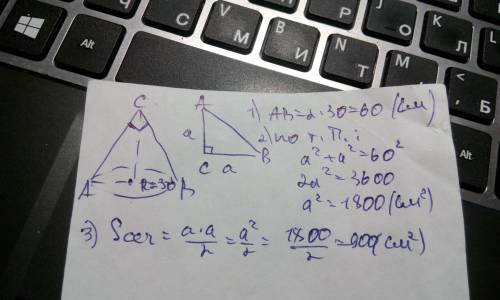 Alt
Ч
С
V
М
B
И
N
Т
J
О
K
Л
Б
Alt
C
A
B
R=30
A
a
C
a
B
1) AB=2·30=60 (см)
2) по т. П.:
a²+a²=60²
2a²=3600
a²=1800 (см²)
3) Sсеч = a·a/2 = a²/2 = 1800/2 = 900(см²)